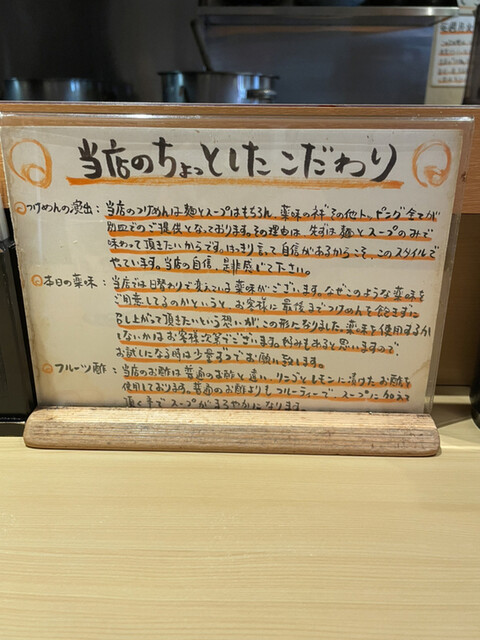 当店のちょっとしたこだわり
つけめんの演出：当店のつけめんは麺とスープはもちろん、薬味のネギその他トッピング全てが
別皿でのご提供となっております。その理由は、先ずは麺とスープのみで
味わって頂きたいからです。はっきり言って自信があるからこそ、このスタイルで
やっています。当店の自信、是非感じて下さい。
本日の薬味：当店では日替わりで変えている薬味がございます。なぜこのような薬味を
ご用意してるのかというと、お客様に最後までつけめんを飽きずに
召し上がって頂きたいという想いがこの形となりました。薬味を使用するか
しないかはお客様次第でございます。好みもあると思いますので
お試しになる時は少量ずつでお願い致します。
フルーツ酢：当店のお酢は普通のお酢と違い、リンゴとレモンに漬けたお酢を
使用しております。普通のお酢よりもフルーティーで、スープに加えて
頂くとスープがまろやかになります。